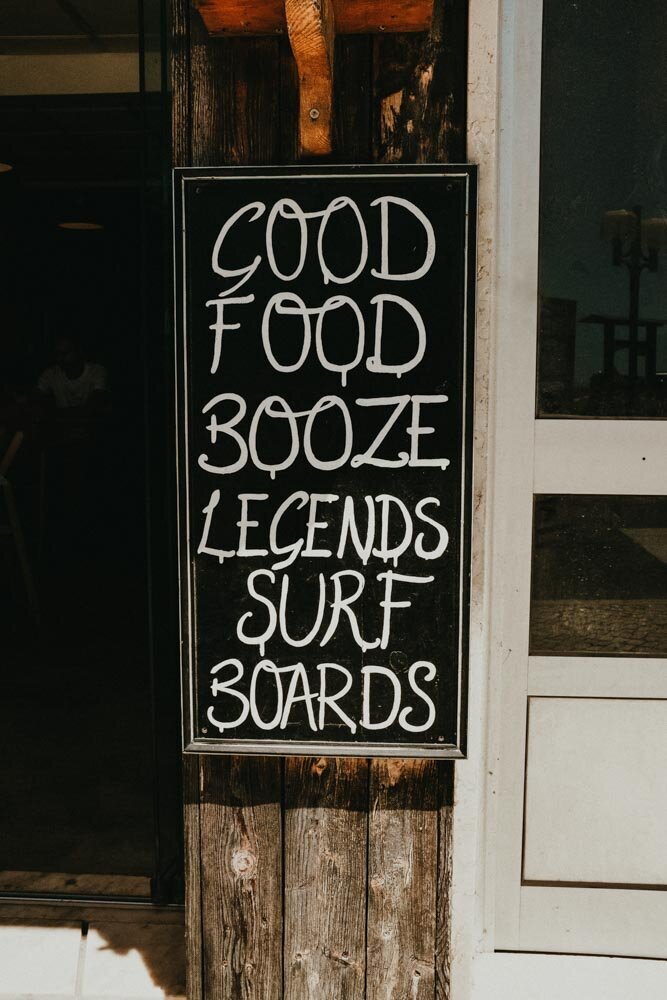 GOOD
FOOD
BOOZE
LEGENDS
SURF
BOARDS